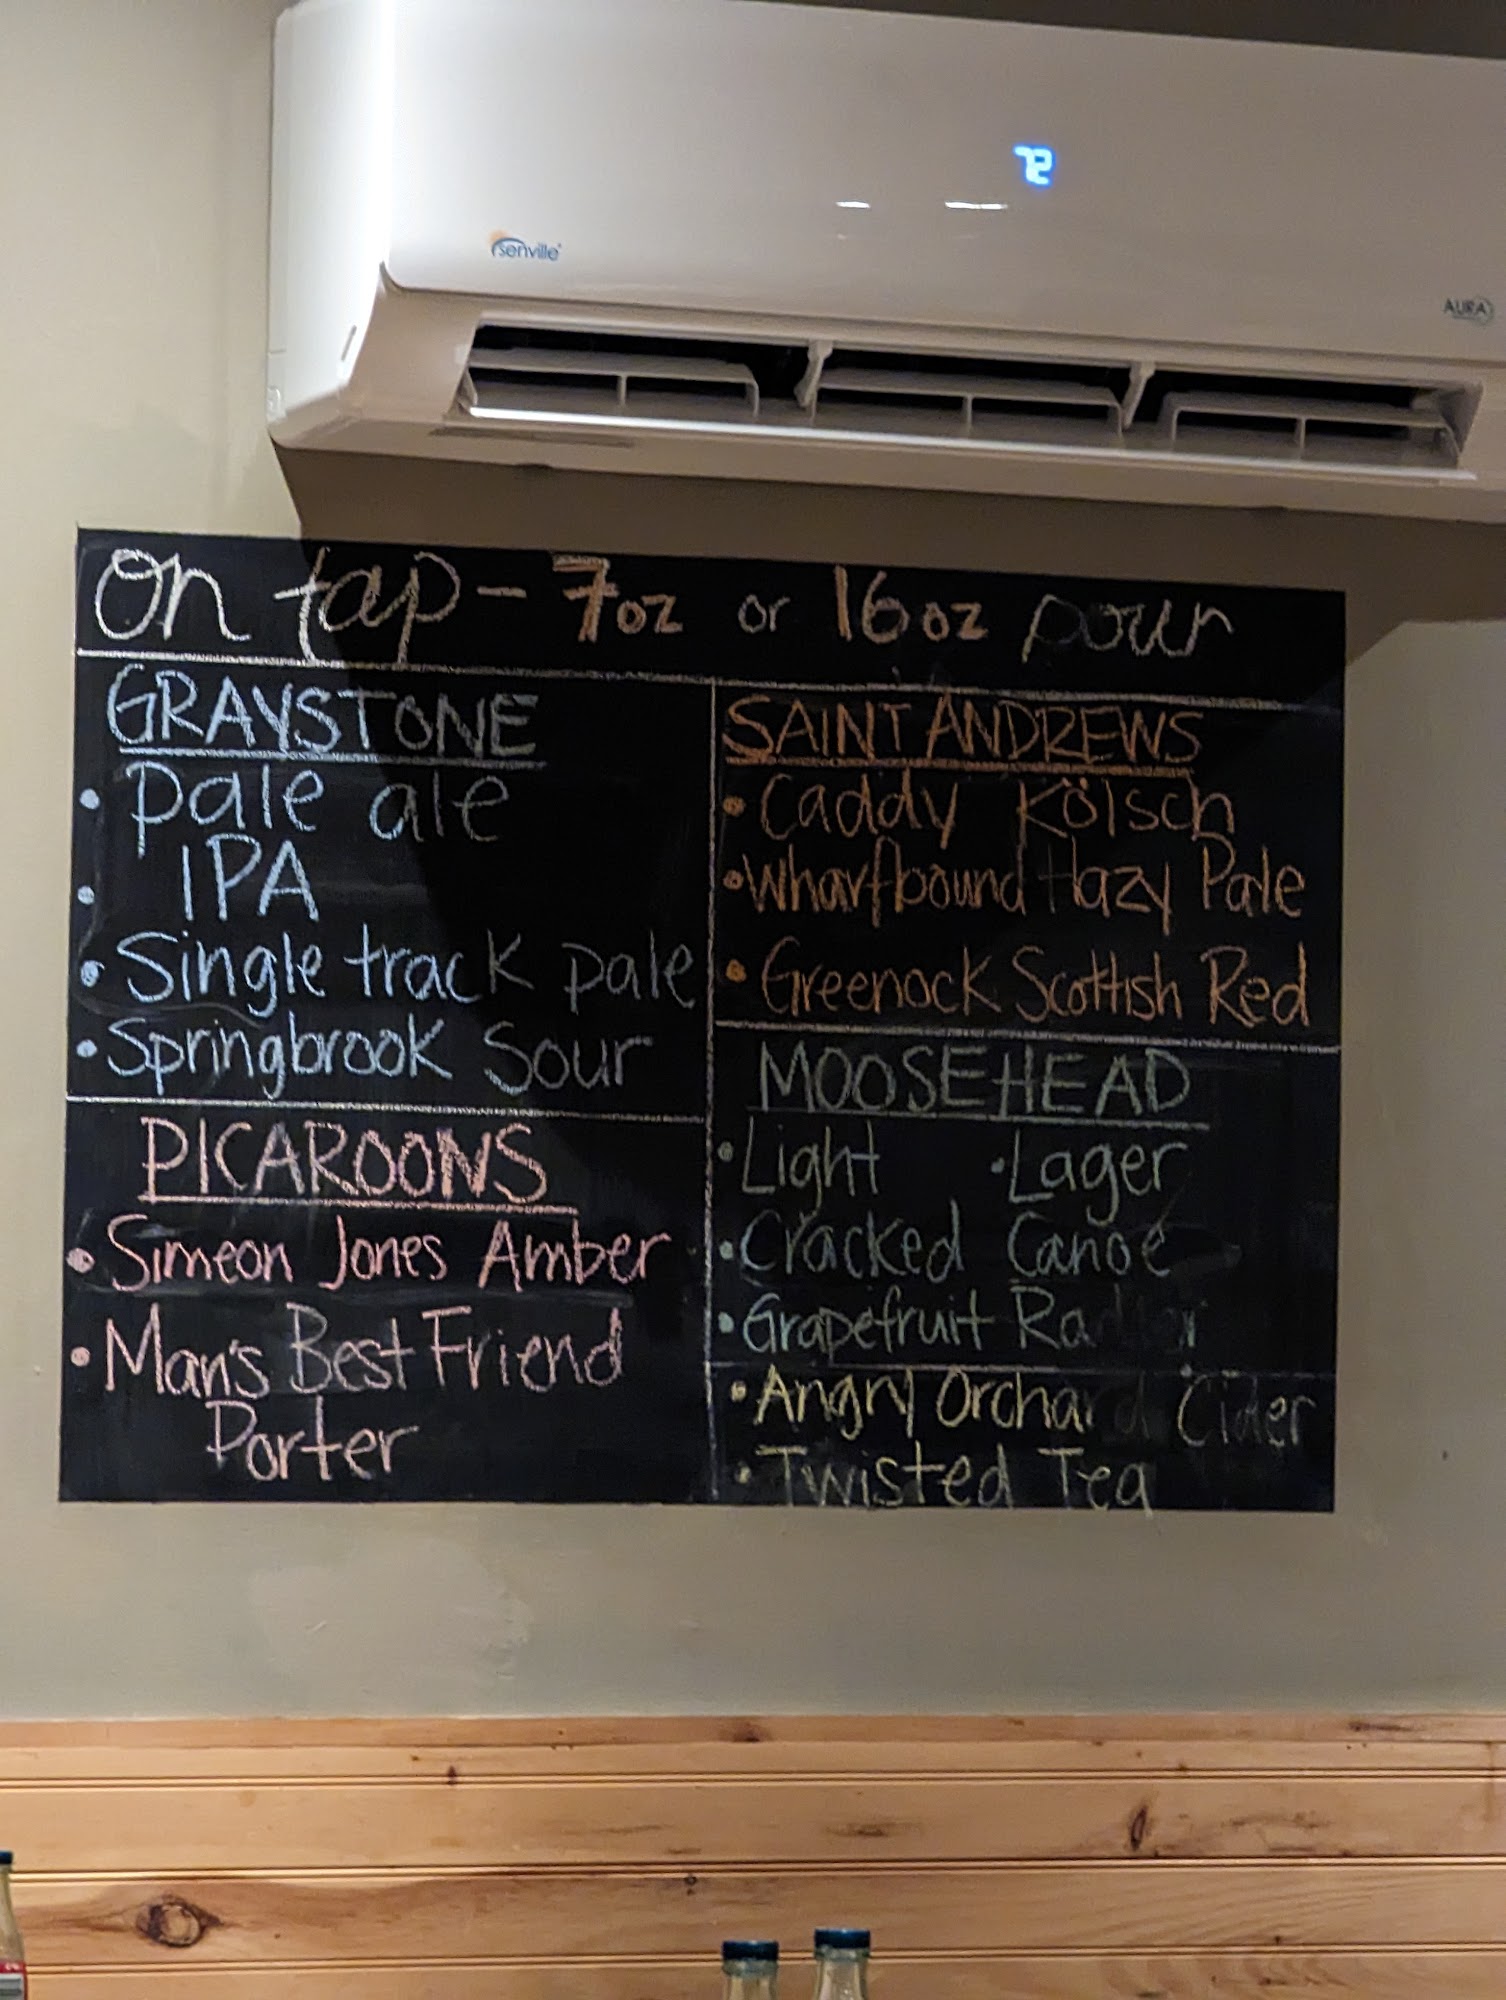 72
senville
AURA
On tap - 7oz or 16oz pour
GRAYSTONE
• Pale ale
• IPA
• Single track pale
• Springbrook Sour
PICAROONS
• Simeon Jones Amber
• Man's Best Friend
Porter
SAINT ANDREWS
• Caddy Kölsch
• Wharfbound Hazy Pale
• Greenock Scottish Red
MOOSEHEAD
• Light • Lager
• Cracked Canoe
• Grapefruit Radler
• Angry Orchard Cider
• Twisted Tea